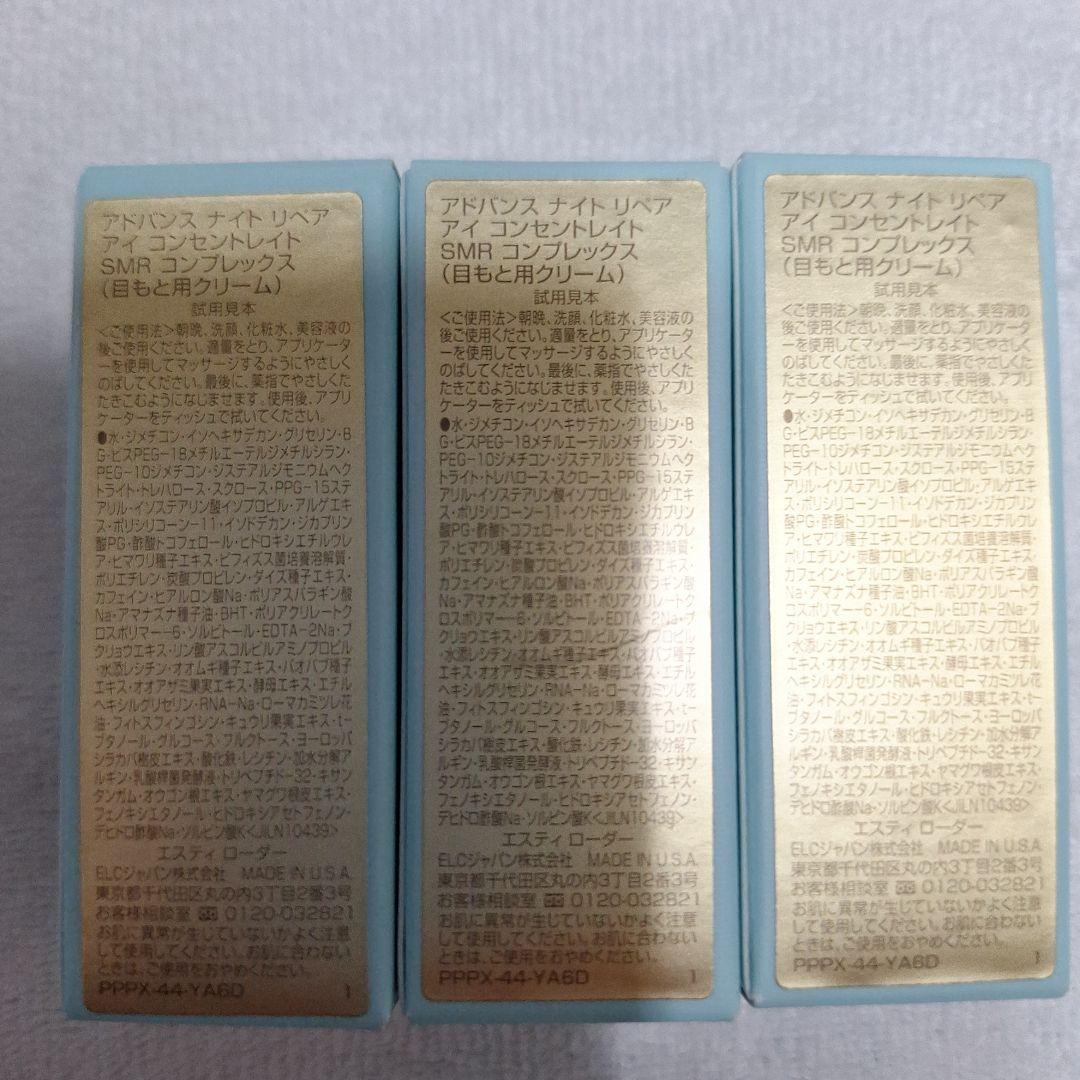 アドバンス ナイト リペア
アイ コンセントレイト
SMR コンプレックス
(目もと用クリーム)
試用見本
<ご使用法>朝晩、洗顔、化粧水、美容液の
後ご使用ください。適量をとり、アプリケータ
ーを使用してマッサージするようにやさしく
のばしてください。最後に、薬指でやさしくた
たきこむようになじませます。使用後、アプリ
ケーターをティッシュで拭いてください。
●水・ジメチコン・イソヘキサデカン・グリセリン・B
G・ビスPEG-18メチルエーテルジメチルシラン・
PEG-10ジメチコン・ジステアルジモニウムヘクト
ライト・トレハロース・スクロース・PPG-15ステ
アリル・イソステアリン酸イソプロピル・アルゲエキ
ス・ポリシリコーン-11・イソドデカン・ジカプリン
酸PG・酢酸トコフェロール・ヒドロキシエチルウレ
ア・ヒマワリ種子エキス・ビフィズス菌培養溶解質・
ポリエチレン・炭酸プロピレン・ダイズ種子エキス・
カフェイン・ヒアルロン酸Na・ポリアスパラギン酸
Na・アマナズナ種子油・BHT・ポリアクリレートク
ロスポリマー-6・ソルビトール・EDTA-2Na・ブ
クリョウエキス・リン酸アスコルビルアミノプロピル
・水添レシチン・オオムギ種子エキス・バオバブ種子
エキス・オオアザミ果実エキス・酵母エキス・エチル
ヘキシルグリセリン・RNA-Na・ローマカミツレ花
油・フィトスフィンゴシン・キュウリ果実エキス・t-ブ
タノール・グルコース・フルクトース・ヨーロッパ
シラカバ樹皮エキス・酸化鉄・レシチン・加水分解ア
ルギン・乳酸桿菌発酵液・トリペプチド-32・キサン
タンガム・オウゴン根エキス・ヤマグワ根皮エキス・
フェノキシエタノール・ヒドロキシアセトフェノン・
デヒドロ酢酸Na・ソルビン酸K<JILN10439>
エスティ ローダー
ELCジャパン株式会社 MADE IN U.S.A.
東京都千代田区丸の内3丁目2番3号
お客様相談室 0120-032821
お肌に異常が生じていないかよく注意
して使用してください。お肌に合わない
ときは、ご使用をおやめください。
PPPX-44-YA6D 1
アドバンス ナイト リペア
アイ コンセントレイト
SMR コンプレックス
(目もと用クリーム)
試用見本
<ご使用法>朝晩、洗顔、化粧水、美容液の
後ご使用ください。適量をとり、アプリケータ
ーを使用してマッサージするようにやさしく
のばしてください。最後に、薬指でやさしくた
たきこむようになじませます。使用後、アプリ
ケーターをティッシュで拭いてください。
●水・ジメチコン・イソヘキサデカン・グリセリン・B
G・ビスPEG-18メチルエーテルジメチルシラン・
PEG-10ジメチコン・ジステアルジモニウムヘク
トライト・トレハロース・スクロース・PPG-15ステ
アリル・イソステアリン酸イソプロピル・アルゲエキ
ス・ポリシリコーン-11・イソドデカン・ジカプリン
酸PG・酢酸トコフェロール・ヒドロキシエチルウレ
ア・ヒマワリ種子エキス・ビフィズス菌培養溶解質・
ポリエチレン・炭酸プロピレン・ダイズ種子エキス・
カフェイン・ヒアルロン酸Na・ポリアスパラギン酸
Na・アマナズナ種子油・BHT・ポリアクリレートク
ロスポリマー-6・ソルビトール・EDTA-2Na・ブ
クリョウエキス・リン酸アスコルビルアミノプロピル
・水添レシチン・オオムギ種子エキス・バオバブ種子
エキス・オオアザミ果実エキス・酵母エキス・エチル
ヘキシルグリセリン・RNA-Na・ローマカミツレ花
油・フィトスフィンゴシン・キュウリ果実エキス・t-
ブタノール・グルコース・フルクトース・ヨーロッパ
シラカバ樹皮エキス・酸化鉄・レシチン・加水分解ア
ルギン・乳酸桿菌発酵液・トリペプチド-32・キサン
タンガム・オウゴン根エキス・ヤマグワ根皮エキス・
フェノキシエタノール・ヒドロキシアセトフェノン・
デヒドロ酢酸Na・ソルビン酸K<JILN10439>
エスティ ローダー
ELCジャパン株式会社 MADE IN U.S.A.
東京都千代田区丸の内3丁目2番3号
お客様相談室 0120-032821
お肌に異常が生じていないかよく注意
して使用してください。お肌に合わない
ときは、ご使用をおやめください。
PPPX-44-YA6D 1
アドバンス ナイト リペア
アイ コンセントレイト
SMR コンプレックス
(目もと用クリーム)
試用見本
<ご使用法>朝晩、洗顔、化粧水、美容液の
後ご使用ください。適量をとり、アプリケータ
ーを使用してマッサージするようにやさしく
のばしてください。最後に、薬指でやさしくた
たきこむようになじませます。使用後、アプリ
ケーターをティッシュで拭いてください。
●水・ジメチコン・イソヘキサデカン・グリセリン・B
G・ビスPEG-18メチルエーテルジメチルシラン・
PEG-10ジメチコン・ジステアルジモニウムヘク
トライト・トレハロース・スクロース・PPG-15ス
テアリル・イソステアリン酸イソプロピル・アルゲエ
キス・ポリシリコーン-11・イソドデカン・ジカプリン
酸PG・酢酸トコフェロール・ヒドロキシエチルウレ
ア・ヒマワリ種子エキス・ビフィズス菌培養溶解質・
ポリエチレン・炭酸プロピレン・ダイズ種子エキス・
カフェイン・ヒアルロン酸Na・ポリアスパラギン酸
Na・アマナズナ種子油・BHT・ポリアクリレートク
ロスポリマー-6・ソルビトール・EDTA-2Na・ブ
クリョウエキス・リン酸アスコルビルアミノプロピル
・水添レシチン・オオムギ種子エキス・バオバブ種子
エキス・オオアザミ果実エキス・酵母エキス・エチル
ヘキシルグリセリン・RNA-Na・ローマカミツレ花
油・フィトスフィンゴシン・キュウリ果実エキス・t-
ブタノール・グルコース・フルクトース・ヨーロッパ
シラカバ樹皮エキス・酸化鉄・レシチン・加水分解ア
ルギン・乳酸桿菌発酵液・トリペプチド-32・キサン
タンガム・オウゴン根エキス・ヤマグワ根皮エキス・
フェノキシエタノール・ヒドロキシアセトフェノン・
デヒドロ酢酸Na・ソルビン酸K<JILN10439>
エスティ ローダー
ELCジャパン株式会社 MADE IN U.S.A.
東京都千代田区丸の内3丁目2番3号
お客様相談室 0120-032821
お肌に異常が生じていないかよく注意
して使用してください。お肌に合わない
ときは、ご使用をおやめください。
PPPX-44-YA6D 1